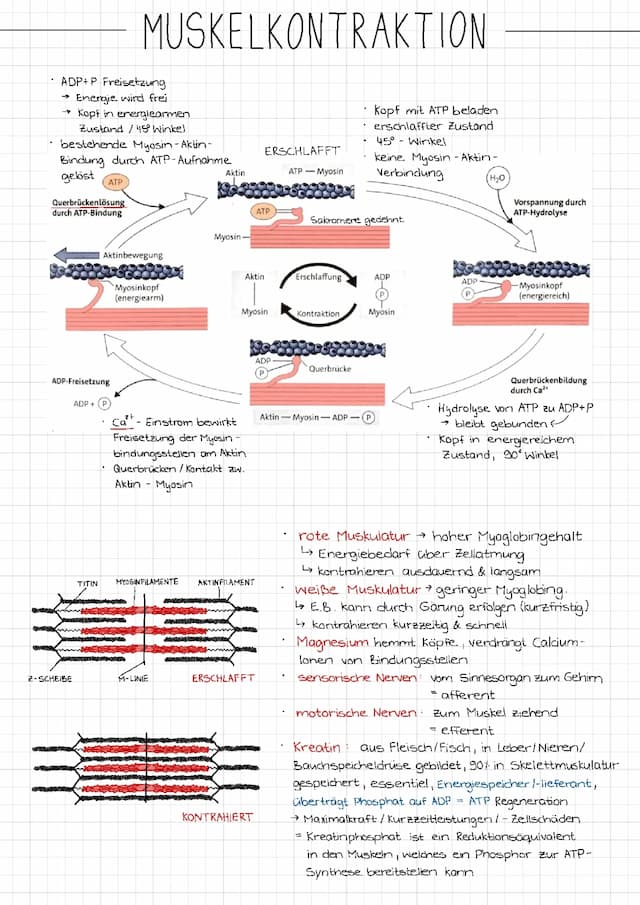 MUSKELKONTRAKTION
· ADP+P Freisetzung
→ Energie wird frei
→ Kopf in energiearmen
Zustand / 45° Winkel
· bestehende Myosin-Aktin-
Bindung durch ATP-Aufnahme
gelöst
ATP
Querbrückenlösung
durch ATP-Bindung
ERSCHLAFFT
Aktin
ATP — Myosin
ATP
Sakromere gedehnt
Myosin
· Kopf mit ATP beladen
· erschlaffter Zustand
· 45° - Winkel
· keine Myosin-Aktin-
Verbindung
H₂O
Vorspannung durch
ATP-Hydrolyse
Aktinbewegung
Myosinkopf
(energiearm)
Aktin
Myosin
Erschlaffung
Kontraktion
ADP
P
Myosin
ADP
P
Myosinkopf
(energiereich)
ADP
P
Querbrücke
Aktin — Myosin — ADP — P
ADP-Freisetzung
ADP + P
Querbrückenbildung
durch Ca²⁺
· Ca²⁺ - Einstrom bewirkt
Freisetzung der Myosin-
bindungsstellen am Aktin
· Querbrücken / Kontakt zw.
Aktin - Myosin
· Hydrolyse von ATP zu ADP+P
→ bleibt gebunden
· Kopf in energiereichem
Zustand, 90° Winkel
TITIN
MYOSINFILAMENTE
AKTINFILAMENT
Z-SCHEIBE
M-LINIE
ERSCHLAFFT
KONTRAHIERT
· rote Muskulatur → hoher Myoglobingehalt
↳ Energiebedarf über Zellatmung
↳ kontrahieren ausdauernd & langsam
· weiße Muskulatur → geringer Myoglobing.
↳ E.B. kann durch Gärung erfolgen (kurzfristig)
↳ kontrahieren kurzzeitig & schnell
· Magnesium hemmt Köpfe, verdrängt Calcium-
Ionen von Bindungsstellen
· sensorische Nerven: vom Sinnesorgan zum Gehirn
= afferent
· motorische Nerven: zum Muskel ziehend
= efferent
· Kreatin: aus Fleisch/Fisch, in Leber/Nieren/
Bauchspeicheldrüse gebildet, 90% in Skelettmuskulatur
gespeichert, essentiel, Energiespeicher/-lieferant,
überträgt Phosphat auf ADP = ATP Regeneration
→ Maximalkraft / Kurzzeitleistungen / - Zellschäden
= Kreatinphosphat ist ein Reduktionsäquivalent
in den Muskeln, welches ein Phosphor zur ATP-
Synthese bereitstellen kann